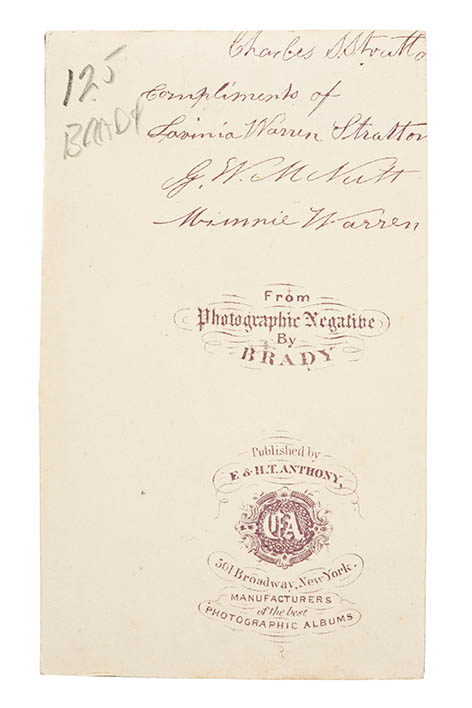 Charles S. Stratto
Compliments of
Lavinia Warren Stratton
G. W. M Nutt
Minnie Warren
125
BRADY
From
Photographic Negative
By
BRADY
Published by
E & H.T. ANTHONY,
EA
501 Broadway, New York.
MANUFACTURERS
of the best
PHOTOGRAPHIC ALBUMS